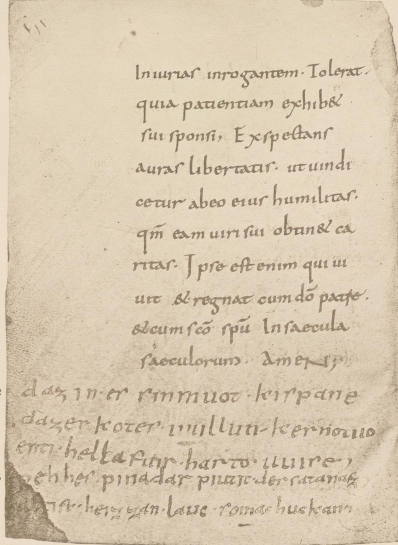 Iniurias inrogantem. Tolerat.
quia patientiam exhib&
sui sponsi, Exspectans
auras libertatis. ut uindi
cetur abeo eius humilitas.
qm̄ eam uiri sui obtin& ca
ritas. Ipse est enim qui ui
uit &regnat cum dō patre.
&cum scō spū Insaecula
saeculorum. Amen;
daz in es sin muot kispane
dazer kotes uuillun kernotuo
enti hella fuir harto uuise,
pehhes pina dar piutit der satanaz
heizzan lauc so mac huckan